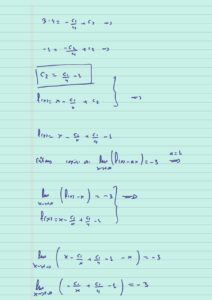 3-4 = -c₁/4 + c₂ ⇒
-1 = -c₁/4 + c₂ ⇒
c₂ = c₁/4 - 1
f(x) = x - c₁/x + c₂
⇒
f(x) = x - c₁/x + c₁/4 - 1
lim x→+∞ (f(x)-αx) = -3
α=1
lim x→+∞ (f(x)-x) = -3
f(x) = x - c₁/x + c₁/4 - 1
⇒
lim x→+∞ (x - c₁/x + c₁/4 - 1 - x) = -3
lim x→+∞ (-c₁/x + c₁/4 - 1) = -3